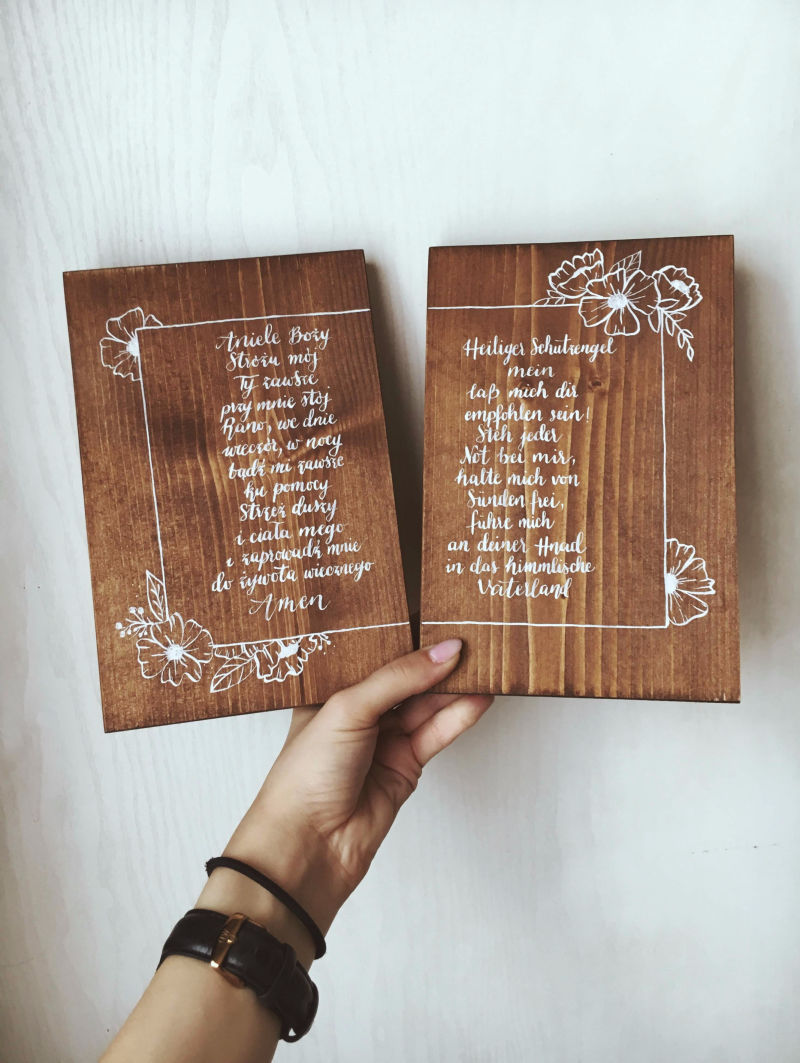 Aniele Boży
Stróżu mój
Ty zawsze
przy mnie stój
Rano, we dnie
wieczór, w nocy
bądź mi zawsze
ku pomocy
Strzeż duszy
i ciała mego
i zaprowadź mnie
do żywota wiecznego
Amen
Heiliger Schutzengel
mein
laß mich dir
empfohlen sein!
Steh jeder
Not bei mir,
halte mich von
Sünden frei,
führe mich
an deiner Hnad
in das himmlische
Vaterland